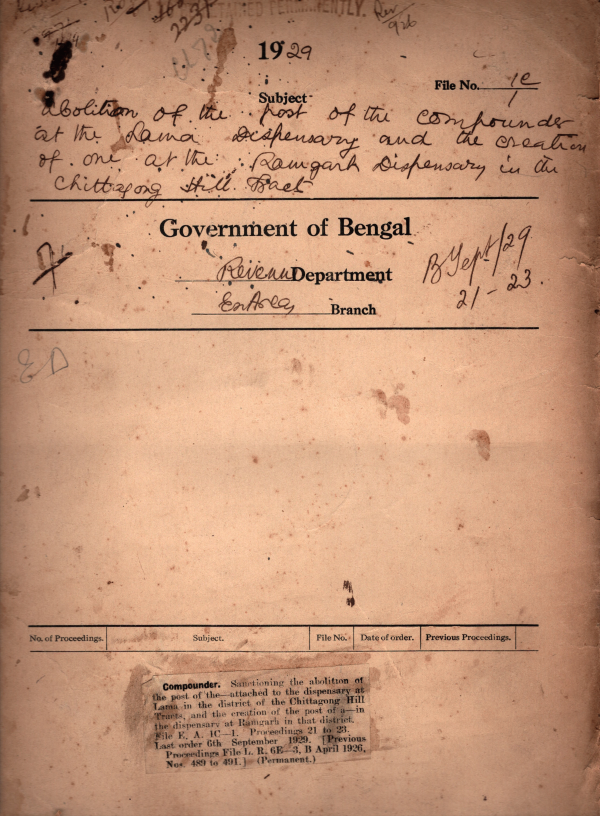 2231
RETAINED PERMANENTLY.
Rev
926
1929
File No. 1C/1
Subject
Abolition of the post of the compounder
at the Lama Dispensary and the creation
of one at the Ramgarh Dispensary in the
Chittagong Hill Tract
Government of Bengal
Revenue Department
B Sept/29
21-23.
Branch
ED
No. of Proceedings. Subject. File No. Date of order. Previous Proceedings.
Compounder. Sanctioning the abolition of
the post of the—attached to the dispensary at
Lama in the district of the Chittagong Hill
Tracts, and the creation of the post of a—in
the dispensary at Ramgarh in that district.
File E. A. 1C—1. Proceedings 21 to 23.
Last order 6th September 1929. [Previous
Proceedings File L. R. 6E—3, B April 1926,
Nos. 489 to 491.] (Permanent.)